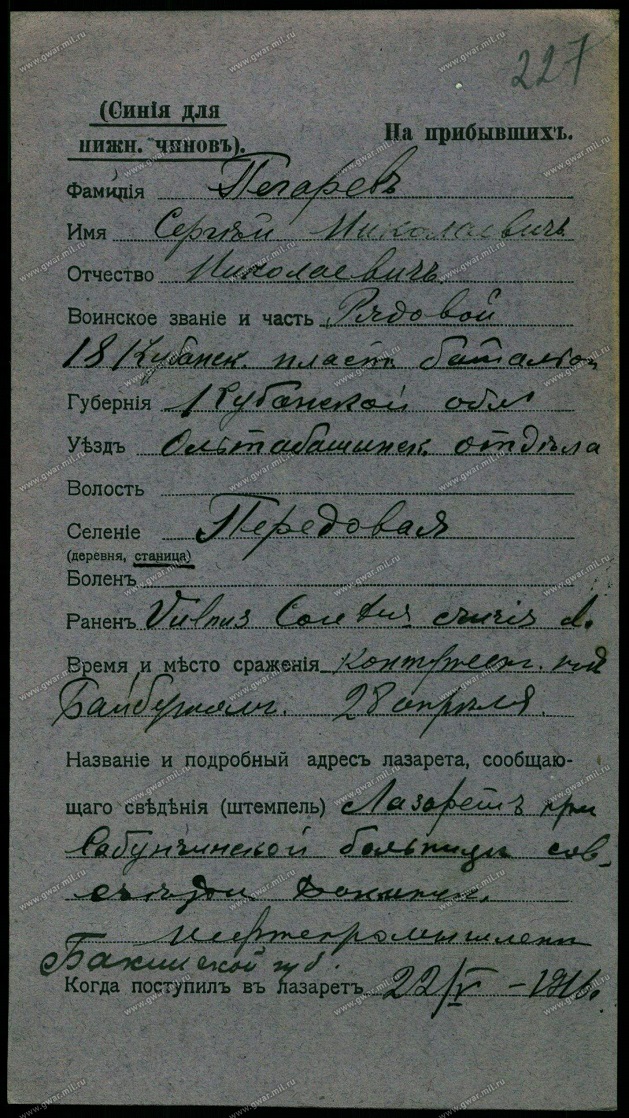 227
(Синія для
нижн. чиновъ).
На прибывшихъ.
Фамилія Пегаревъ
Имя Сергѣй Николаевичъ
Отчество Николаевичъ
Воинское званіе и часть Рядовой
18 Кубанск. пласт. баталіон
Губернія Кубанской обл.
Уѣздъ отдѣла
Волость
Селеніе Передовая
(деревня, станица)
Боленъ
Раненъ Vulnus cruris
Время и мѣсto сраженія под
28 апрѣля.
Названіе и подробный адресъ лазарета, сообщаю-
щаго свѣдѣнія (штемпель) Лазаретъ при
Сабунчинской больницы сов.
съѣзда Бакинск.
нефтепромышлен
Бакинской губ.
Когда поступилъ въ лазаретъ 22/V – 1916.
www.gwar.mil.ru